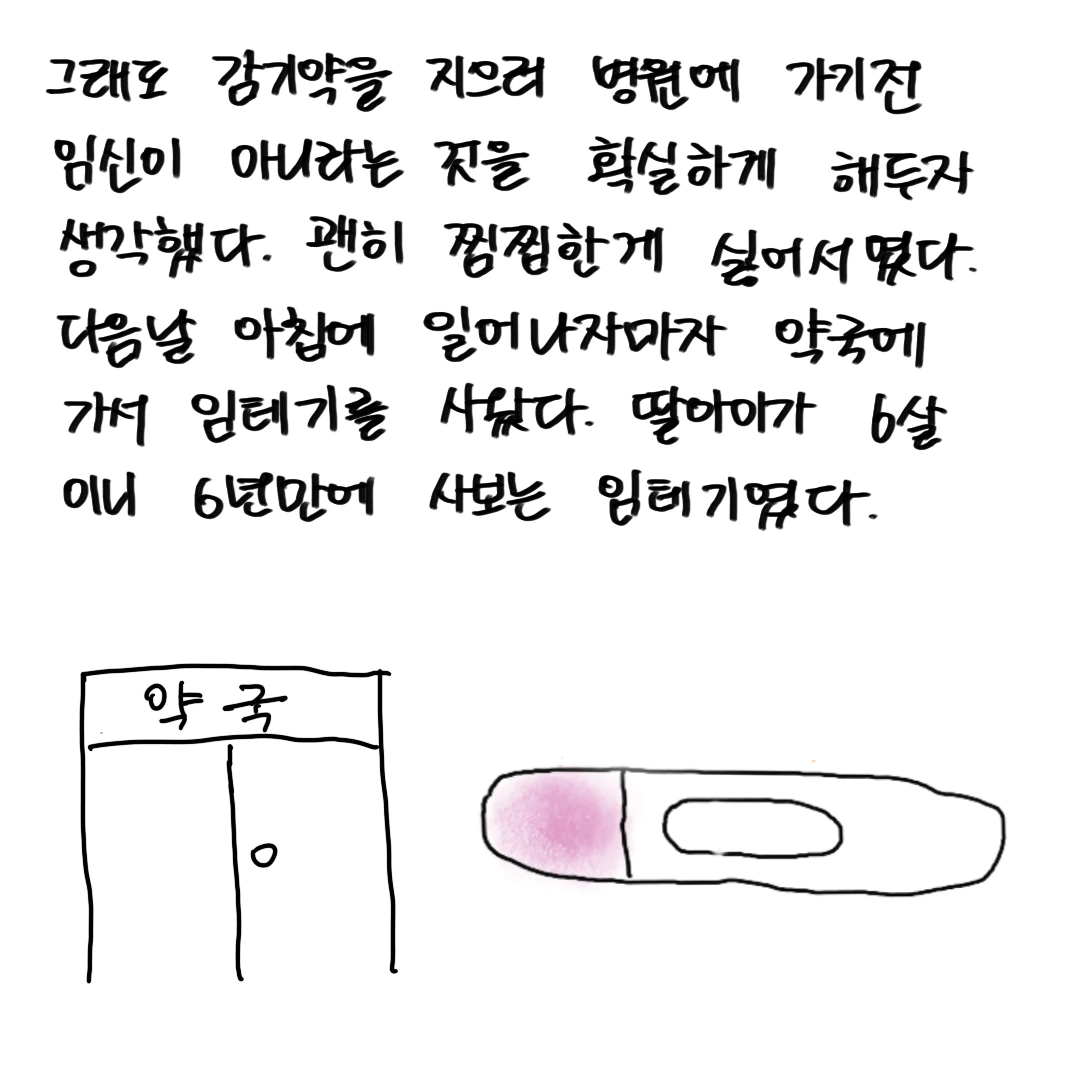 그래도 감기약을 지으러 병원에 가기전
임신이 아니라는 것을 확실하게 해두자
생각했다. 괜히 찜찜한게 싫어서였다.
다음날 아침에 일어나자마자 약국에
가서 임테기를 사왔다. 딸아이가 6살
이니 6년만에 사보는 임테기였다.
약국